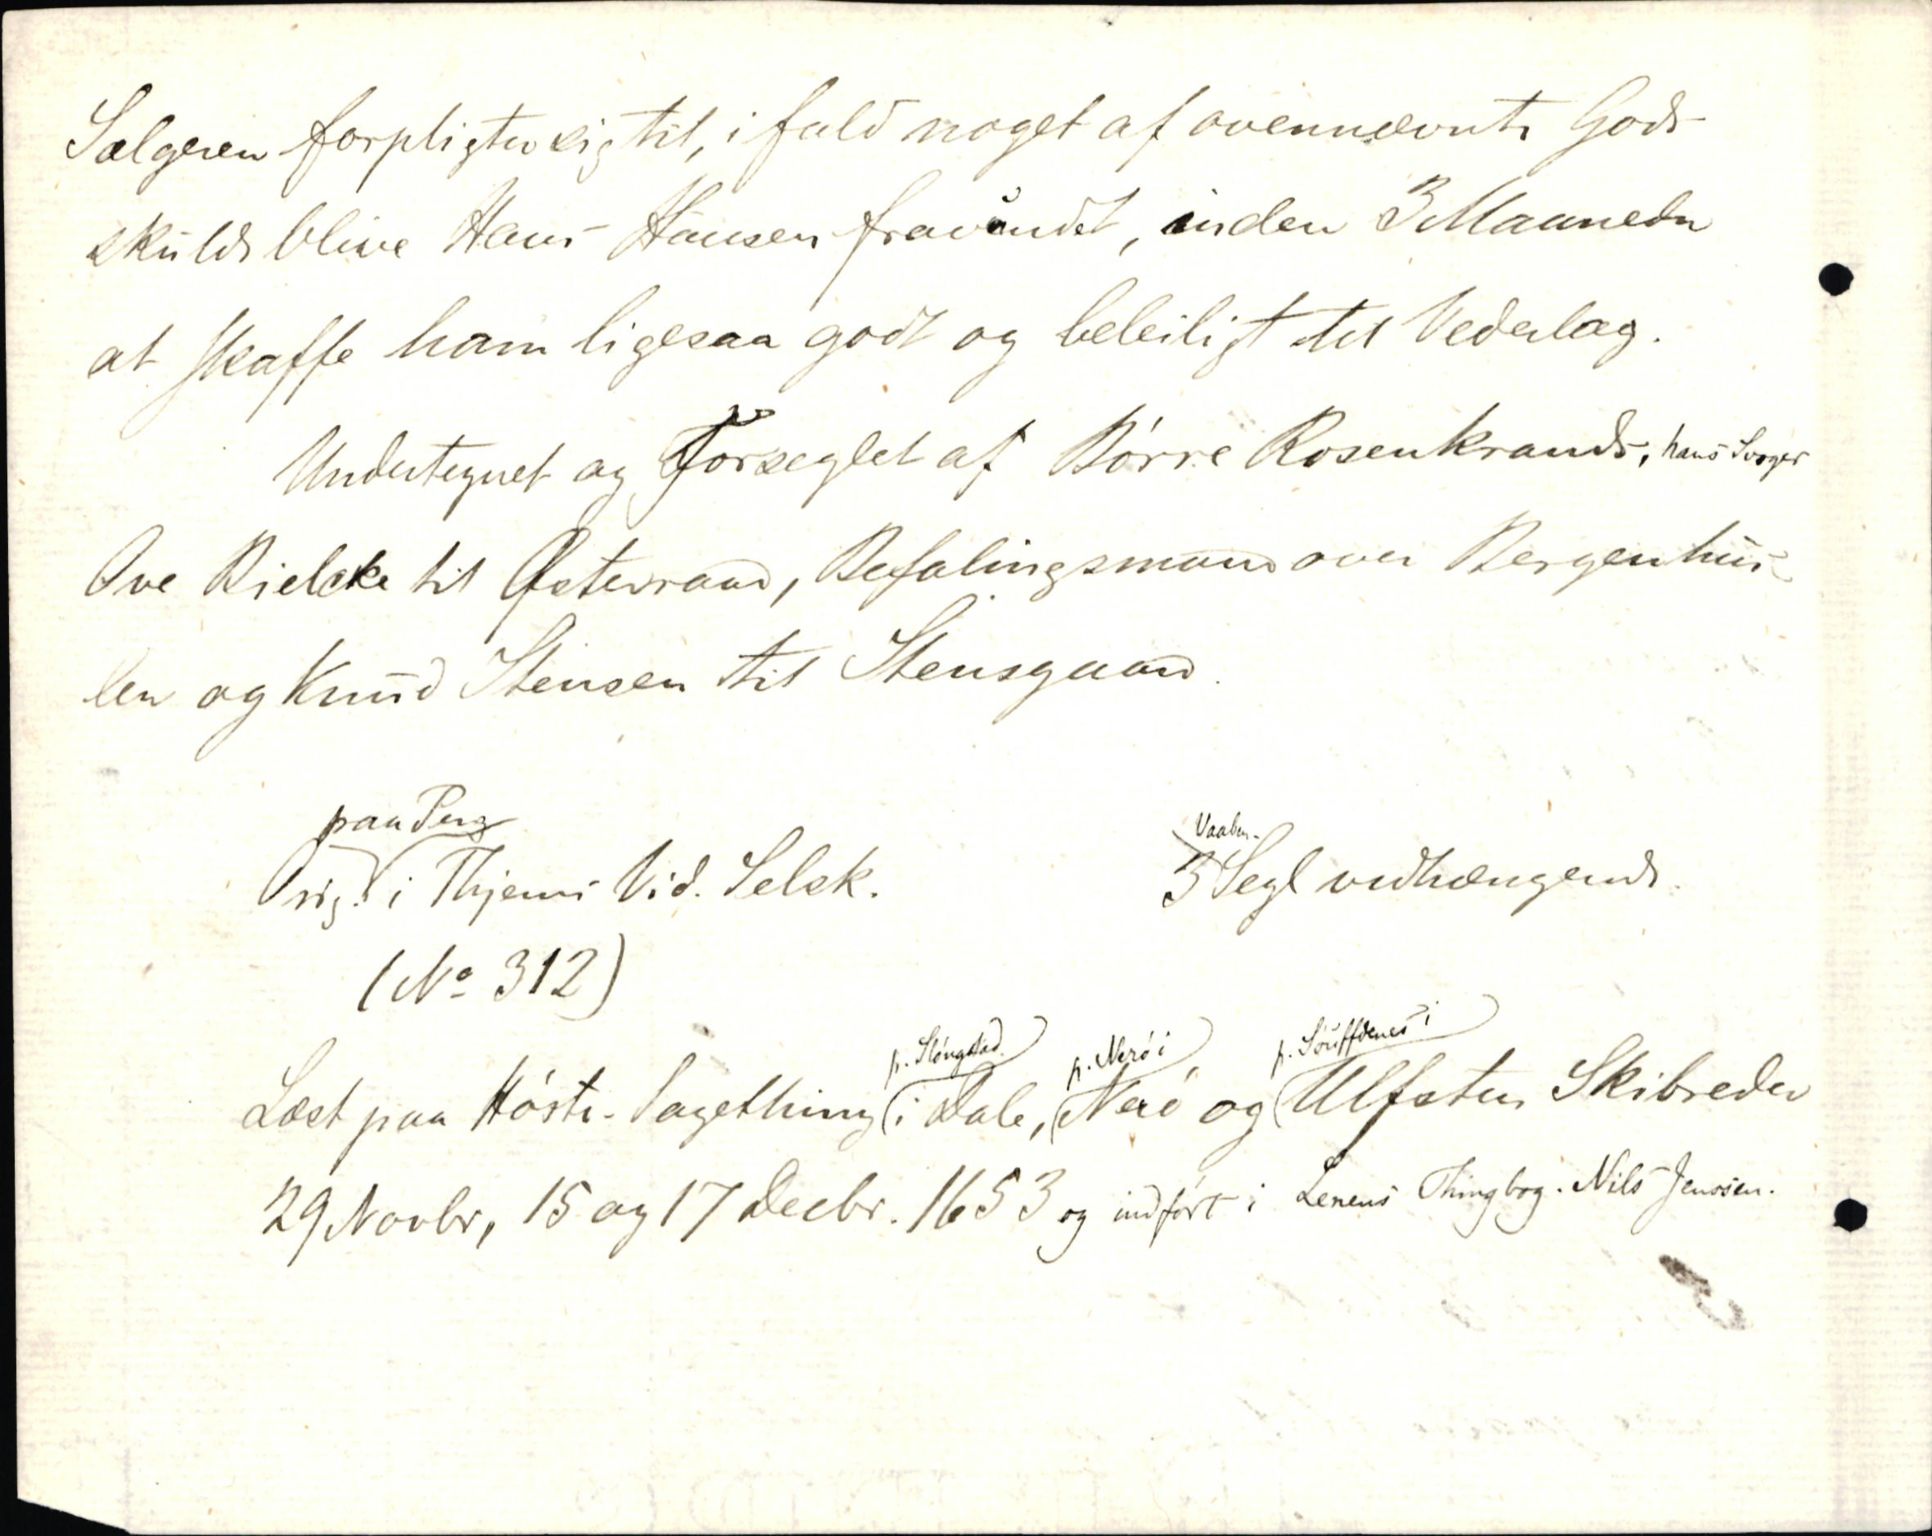 Sælgeren forpligter sig til, i fald noget af ovennævnte Gods
skulde blive Hans Hansen fravundet, inden 3 Maaneder
at skaffe ham ligesaa godt og beleiligt til Vederlag.
Undertegnet og Forseglet af Börre Rosenkrands, hans Svoger
Ove Bielcke til Østeraad, Befalingsmand over Bergenhus
len og Knud Stensen til Stensgaard.
paa Perg
Orig. i Thjems Vid. Selsk.
Vaaben-
3 Segl vedhængende.
(No 312)
p. Slöngstad p. Nerö i p. Söuffdenes i
Læst paa Höste-Sagething i Dale, Nerö og Ulfsten Skibreder
29 Novbr, 15 og 17 Decbr. 1653 og indfört i Lenens Thingbog. Nils Jenssen.